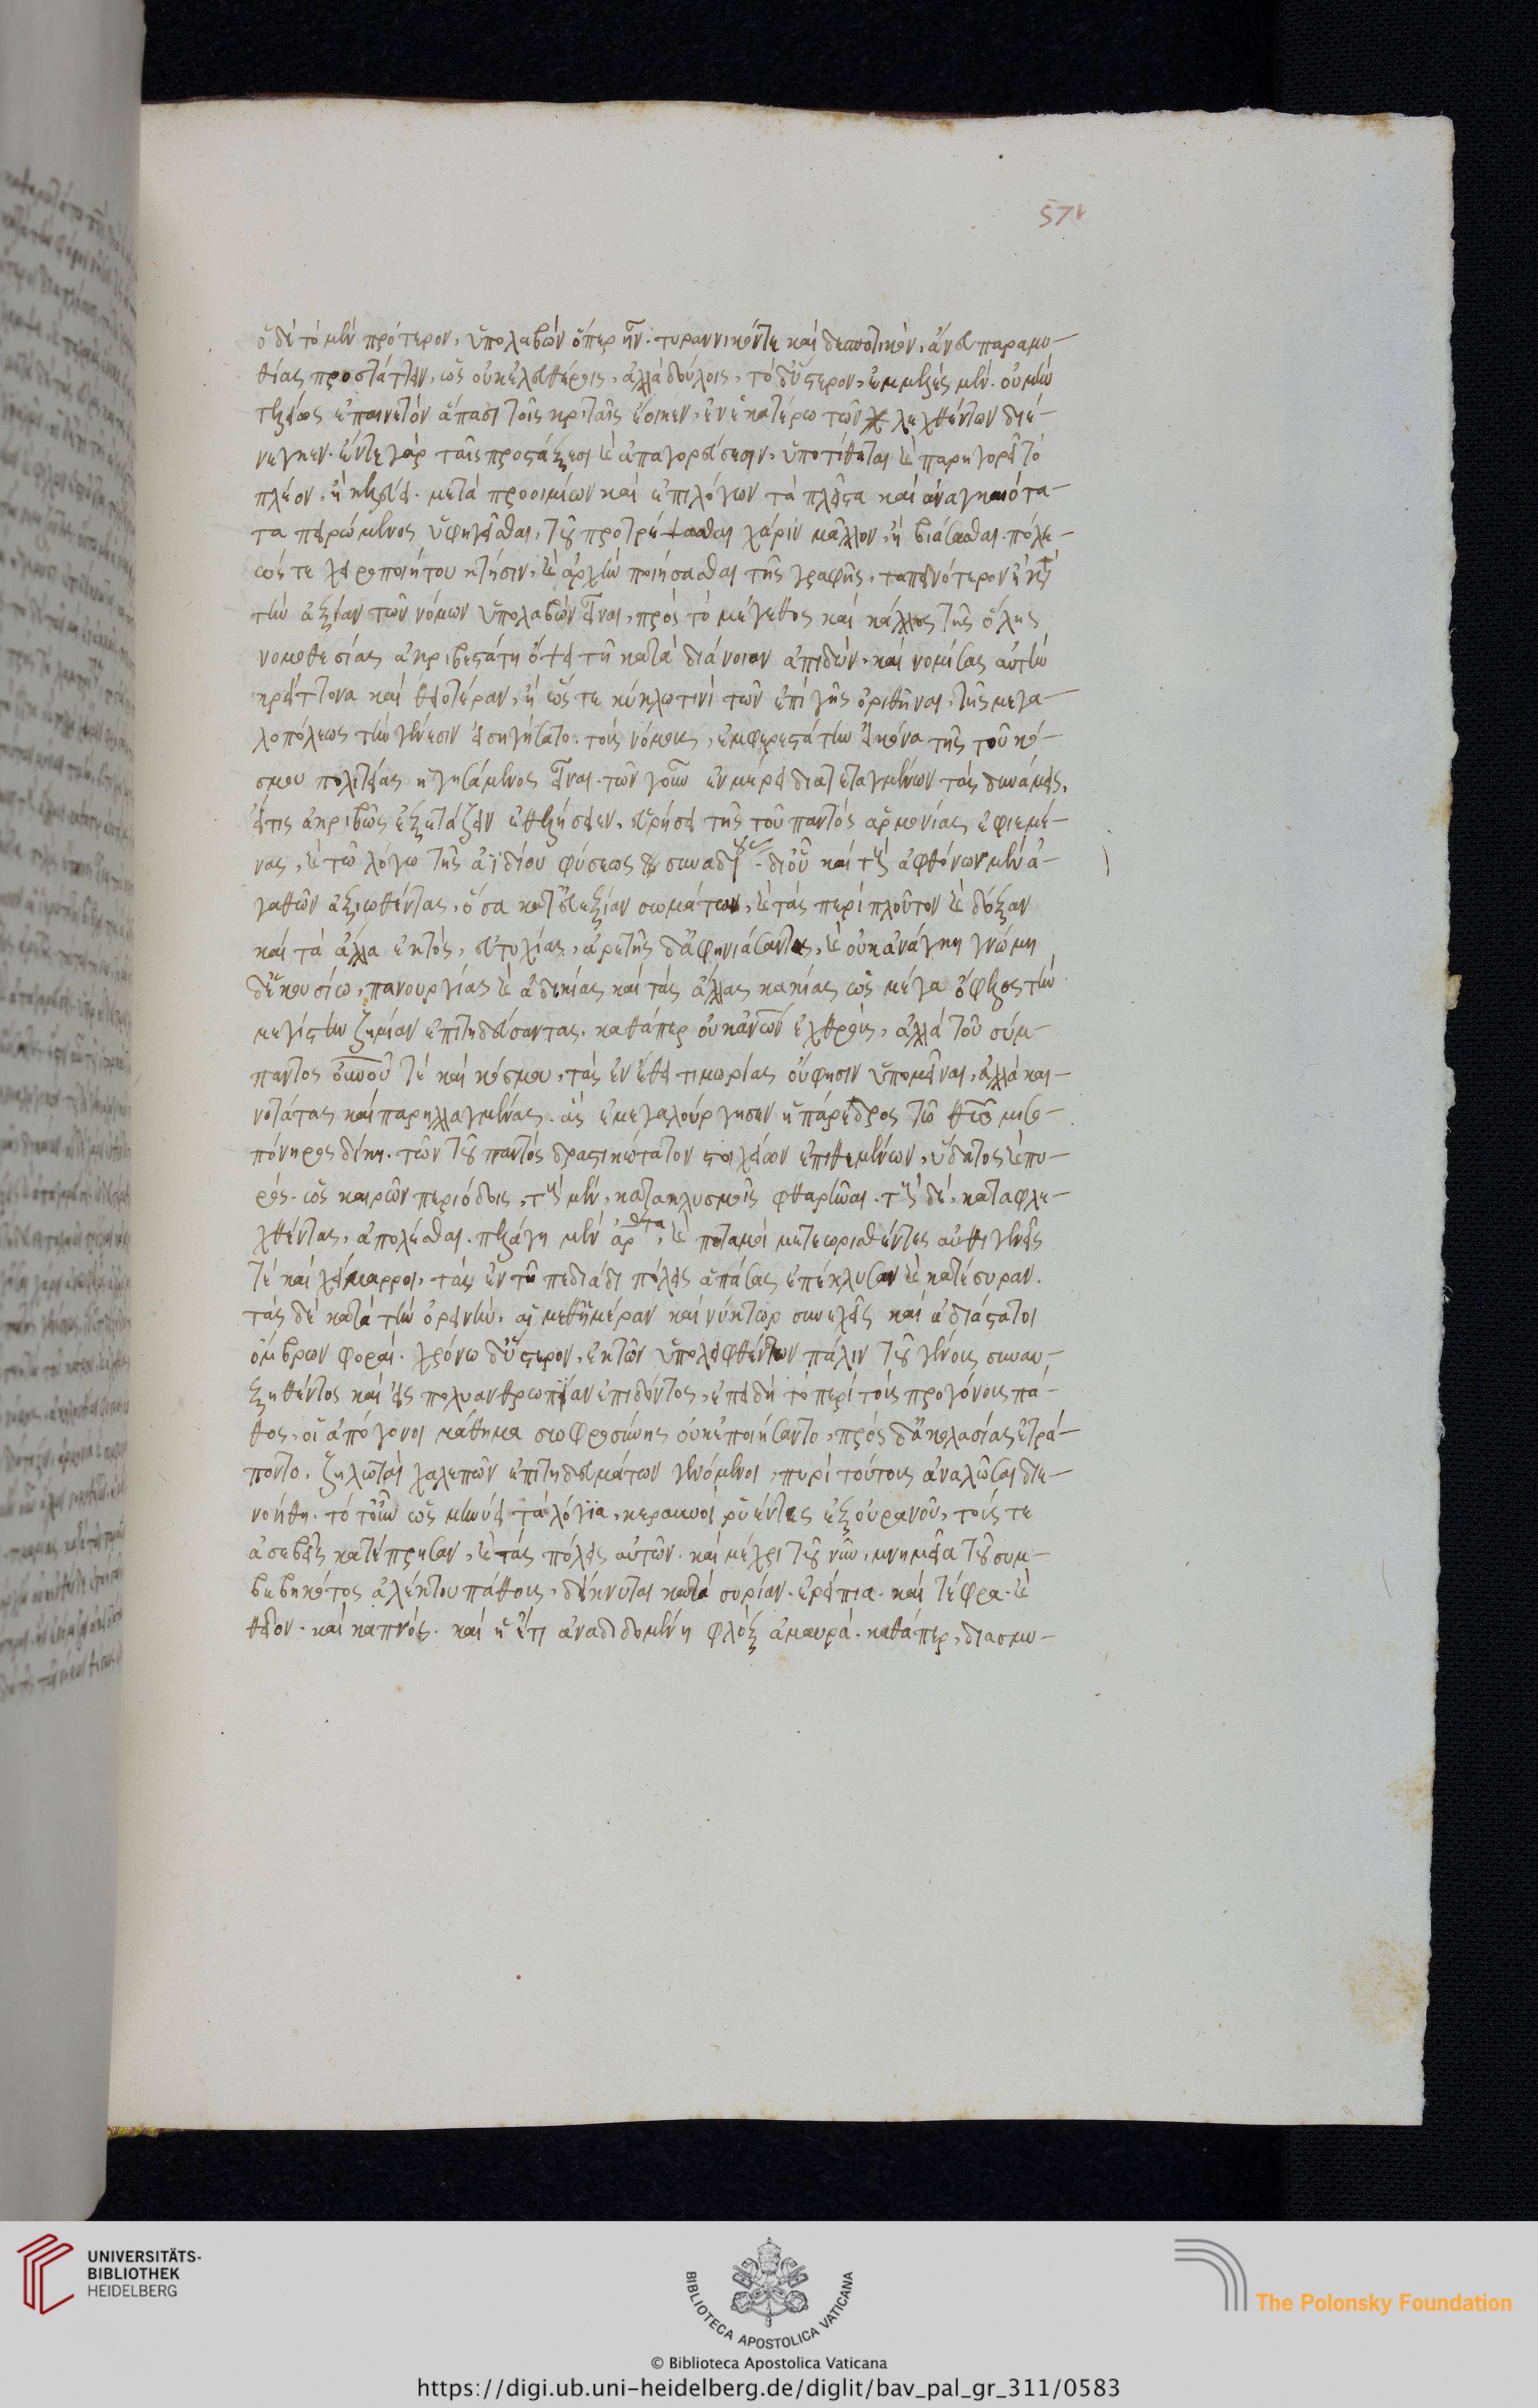 57v
ὁ δὲ τὸ μὲν πρότερον, ὑπολαβὼν ὅπερ ἦν· τυραννικόν τε καὶ δεσποτικόν, ἄνευ παραμυ-
θίας προστάττειν, ὡς οὐκ ἐλευθέροις, ἀλλὰ δούλοις, τὸ δ' ὕστερον, ἐμμελὲς μέν· οὐ μὴν
τελέως ἐπαινετὸν ἅπασι τοῖς κριταῖς ἔοικεν, ἐν ἑκατέρω τῶν λεχθέντων διέ-
νεγκεν· ἔν τε γὰρ ταῖς προστάξεσι καὶ ἀπαγορεύσεσιν, ὑποτίθεται καὶ παρηγορεῖ τὸ
πλέον, ἢ κελεύει· μετὰ προοιμίων καὶ ἐπιλόγων τὰ πλεῖστα καὶ ἀναγκαιότα-
τα πειρώμενος ὑφηγεῖσθαι, τοῦ προτρέψασθαι χάριν μᾶλλον, ἢ βιάσασθαι· πόλε-
ώς τε χειροποιήτου κτίσιν, καὶ ἀρχὴν ποιήσασθαι τῆς γραφῆς, ταπεινότερον ἢ κατὰ
τὴν ἀξίαν τῶν νόμων ὑπολαβὼν εἶναι, πρὸς τὸ μέγεθος καὶ κάλλος τῆς ὅλης
νομοθεσίας ἀκριβεστάτη ὄψει τῆ κατὰ διάνοιαν ἀπιδών· καὶ νομίσας αὐτὴν
κρείττονα καὶ θειοτέραν, ἢ ὥστε κύκλω τινὶ τῶν ἐπὶ γῆς ὁρισθῆναι, τῆς μεγα-
λοπόλεως τὴν γένεσιν εἰσηγήσατο· τοὺς νόμους, ἐμφερεστάτην εἰκόνα τῆς τοῦ κό-
σμου πολιτείας ἡγησάμενος εἶναι· τῶν γοῦν ἐν μέρει διατεταγμένων τὰς δυνάμεις,
εἴ τις ἀκριβῶς ἐξετάζειν ἐθελήσειεν, εὑρήσει τῆς τοῦ παντὸς ἁρμονίας ἐφιεμέ-
νας, καὶ τῶ λόγω τῆς ἀϊδίου φύσεως συναδούσας· διὸ καὶ τοὺς ἀφθόνων μὲν ἀ-
γαθῶν ἀξιωθέντας, ὅσα κατ' εὐεξίαν σωμάτων, καὶ τὰς περὶ πλοῦτον καὶ δόξαν
καὶ τὰ ἄλλα ἐκτός, εὐτυχίας, ἀρετῆς δ' ἀφηνιάσαντας, καὶ οὐκ ἀνάγκη γνώμη
δ' ἑκουσίω, πανουργίας καὶ ἀδικίας καὶ τὰς ἄλλας κακίας ὡς μέγα ὄφελος τὴν
μεγίστην ζημίαν ἐπιτηδεύσαντας, καθάπερ οὐκ ἀνθρώπων ἐχθρούς, ἀλλὰ τοῦ σύμ-
παντος οὐρανοῦ τὲ καὶ κόσμου, τὰς ἐν ἔθει τιμωρίας οὔφησιν ὑπομεῖναι, ἀλλὰ και-
νοτάτας καὶ παρηλλαγμένας· ἃς ἐμεγαλούργησεν ἡ πάρεδρος τῶ θεῶ μισο-
πόνηρος δίκη· τῶν τοῦ παντὸς δραστικώτατον στοιχείων ἐπιθεμένων, ὕδατος καὶ πυ-
ρός· ὡς καιρῶν περιόδοις, τοὺς μέν, κατακλυσμοῖς φθαρῆναι· τοὺς δέ, καταφλε-
χθέντας, ἀπολέσθαι· πελάγη μὲν ἀρθέντα, καὶ ποταμοὶ μετεωρισθέντες αὐθιγενεῖς
τὲ καὶ χείμαρροι, τὰς ἐν τῆ πεδιάδι πόλεις ἁπάσας ἐπέκλυσαν καὶ κατέσυραν.
τὰς δὲ κατὰ τὴν ὀρεινήν, αἱ μεθ' ἡμέραν καὶ νύκτωρ συνεχεῖς καὶ ἀδιάστατοι
ὄμβρων φοραί· χρόνω δ' ὕστερον, ἐκ τῶν ὑπολειφθέντων πάλιν τοῦ γένους συναυ-
ξηθέντος καὶ εἰς πολυανθρωπίαν ἐπιδόντος, ἐπειδὴ τὸ περὶ τοὺς προγόνους πά-
θος, οἱ ἀπόγονοι μάθημα σωφροσύνης οὐκ ἐποιήσαντο, πρὸς δ' ἀκολασίας ἐτρά-
ποντο, ζηλωταὶ χαλεπῶν ἐπιτηδευμάτων γενόμενοι, πυρὶ τούτους ἀναλῶσαι διε-
νοήθη· τότ' οὖν ὡς μηνύει τὰ λόγϊα, κεραυνοὶ ῥυέντες ἐξ οὐρανοῦ, τούς τε
ἀσεβεῖς κατέπρησαν, καὶ τὰς πόλεις αὐτῶν· καὶ μέχρι τοῦ νῦν, μνημεῖα τοῦ συμ-
βεβηκότος ἀλέκτου πάθους, δείκνυται κατὰ συρίαν· ἐρείπια· καὶ τέφρα· καὶ
θεῖον· καὶ καπνός· καὶ ἡ ἔτι ἀναδιδομένη φλὸξ ἀμαυρά· καθάπερ, διασμυ-
UNIVERSITÄTS-
BIBLIOTHEK
HEIDELBERG
BIBLIOTECA APOSTOLICA VATICANA
The Polonsky Foundation
© Biblioteca Apostolica Vaticana
https://digi.ub.uni-heidelberg.de/diglit/bav_pal_gr_311/0583